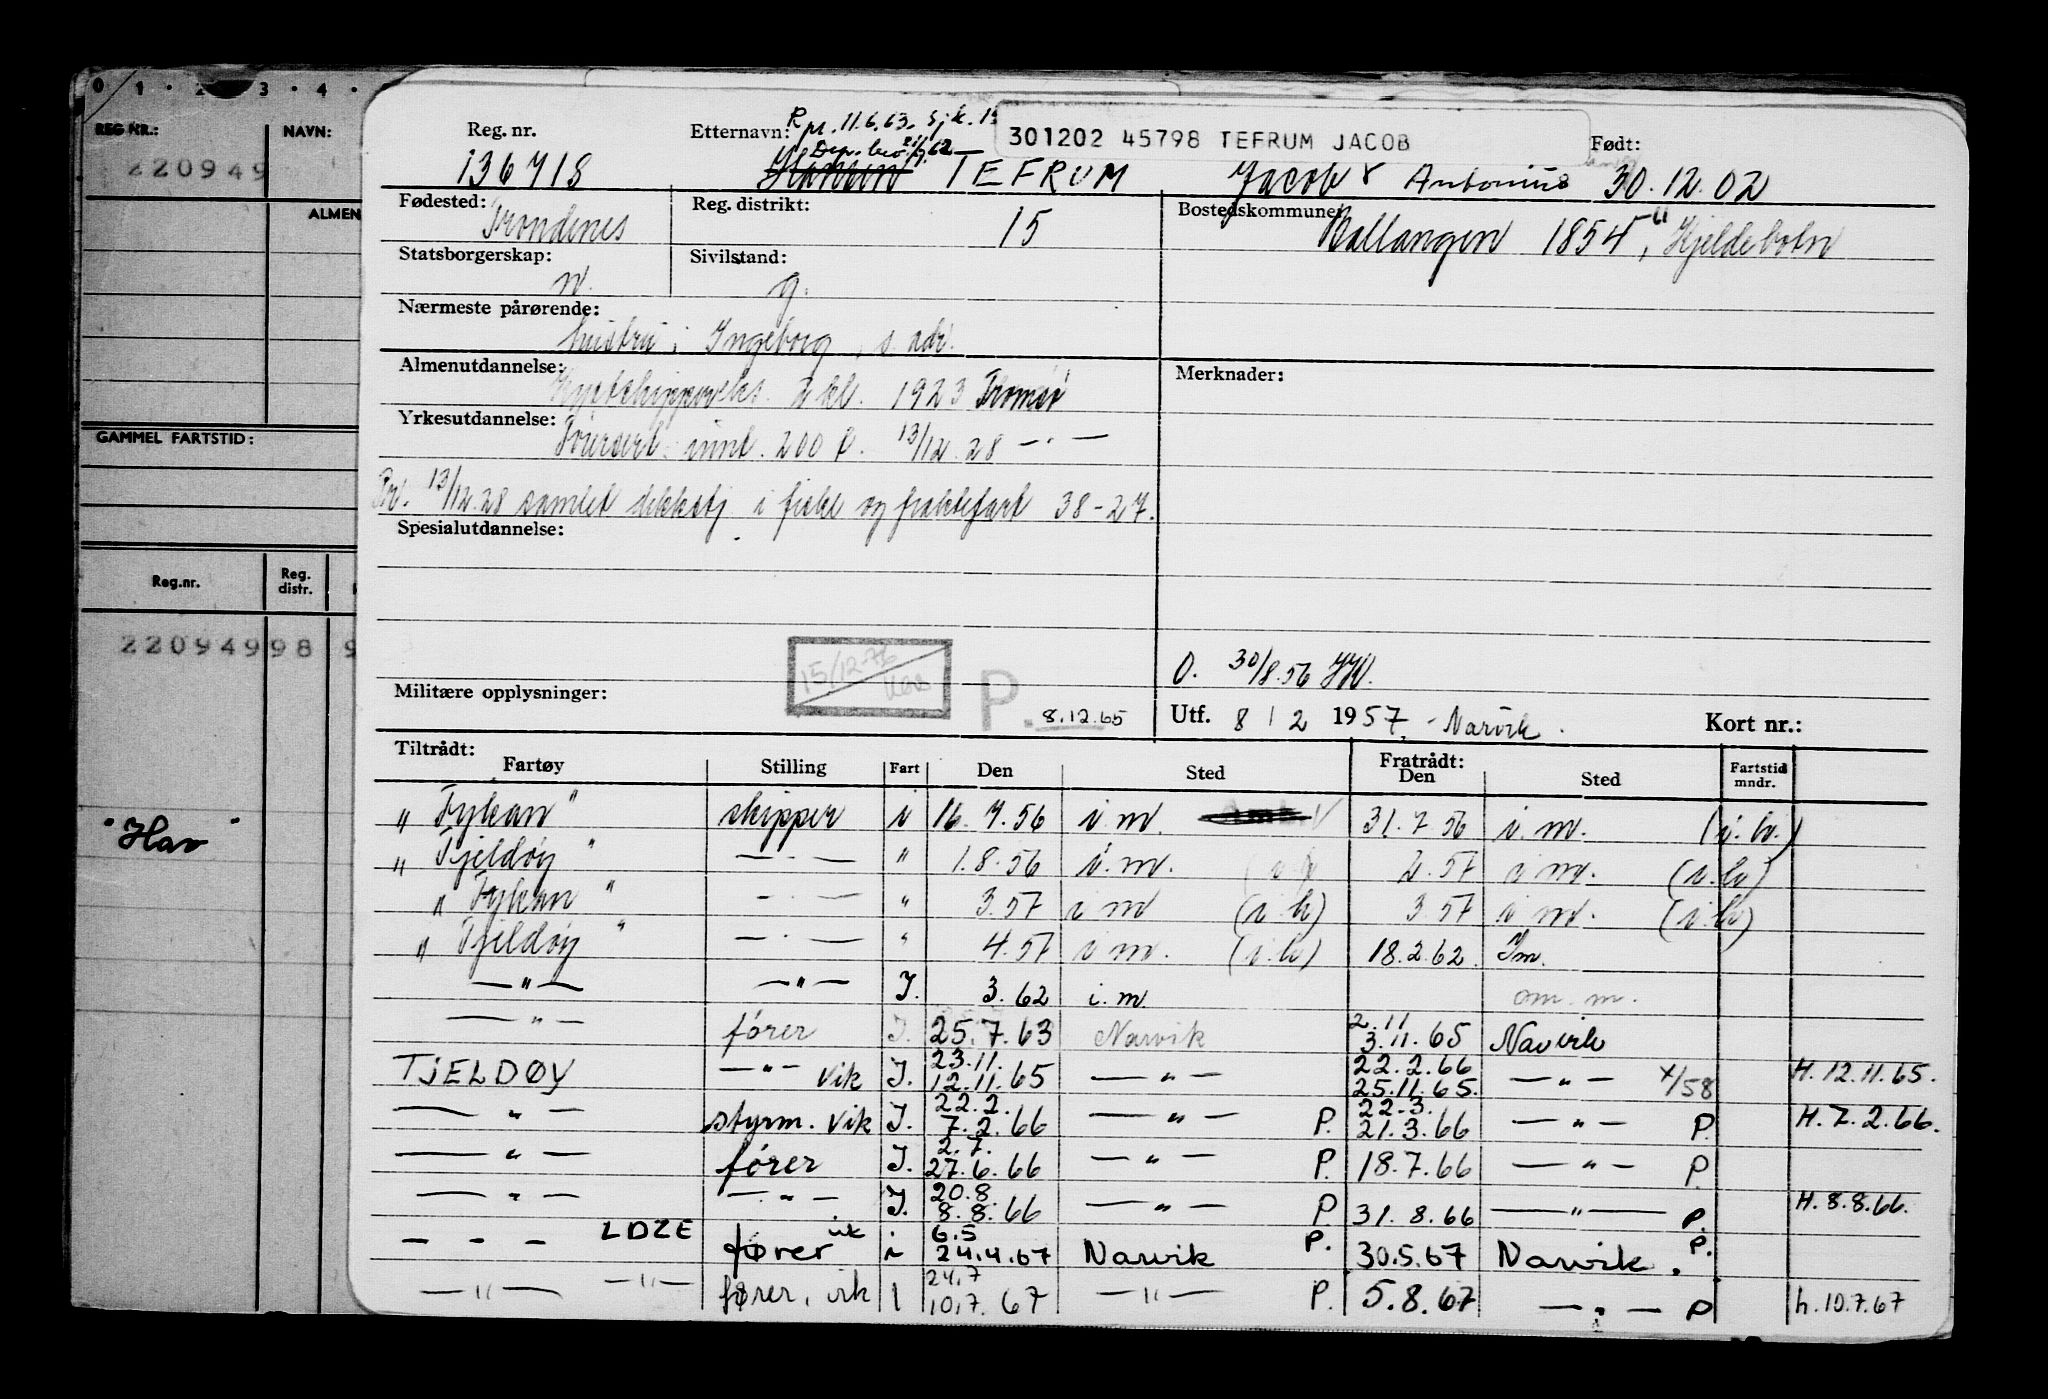 0 1 · 2 · 3 · 4 ·
REG NR.: NAVN:
220949
ALMEN
GAMMEL FARTSTID:
Reg.nr. Reg. distr.
22094998 9
"Hav"
R pr. 11.6.63. Sjk. 15
301202 45798 TEFRUM JACOB
Reg. nr. Etternavn: Født:
Dep. 21/9.62
136718 TEFRUM Jacob Antonius 30.12.02
Fødested: Trondenes Reg. distrikt: 15 Bostedskommune: Ballangen 1854, Kjeldebotn
Statsborgerskap: n. Sivilstand: g.
Nærmeste pårørende:
hustru: Ingeborg, s. adr.
Almenutdannelse: Merknader:
Kystskippereks. 2 kl. 1923 Tromsø
Yrkesutdannelse:
innt. 200 t. 13/12.28 — · —
Pr. 13/12.28 samlet dekkstj. i fiske og fraktefart 38-27.
Spesialutdannelse:
15/12-76
O. 30/8.56
Militære opplysninger: P. 8.12.65 Utf. 8 / 2 1957. - Narvik. Kort nr.:
Tiltrådt: Fratrådt:
Fartøy Stilling Fart Den Sted Den Sted Fartstid mndr.
"Fykan" skipper i 16.7.56 i.m. 31.7.56 i.m. (i.h.)
"Tjeldøy" — · — " 1.8.56 i.m. 2.57 i.m. (i.h)
"Fykan" — · — " 3.57 i m (i.h) 3.57 i m. (i.h)
"Tjeldøy" — · — " 4.57 i m. (i.h) 18.2.62. Im.
— " — — " — I. 3.62 i.m om. m.
— " — fører I. 25.7.63 Narvik 2.11 3.11.65 Narvik
TJELDØY — " — vik I. 23.11. 12.11.65 — " — 22.2.66 25.11.65. — " — x/58 H.12.11.65.
— " — styrm. vik I. 22.2. 7.2.66 — " — P. 22.3. 21.3.66 — " — P. H.7.2.66.
— " — fører I. 2.7. 27.6.66 — " — P. 18.7.66 — " — P.
— " — — " — I. 20.8 8.8.66 — " — P 31.8.66 — " — P. H.8.8.66.
— — — LDZE fører vik i 6.5 24.4.67 Narvik P. 30.5.67 Narvik. P.
— " — — " — fører, vik I 24.7 10.7.67 — " — P. 5.8.67 — " — P h.10.7.67